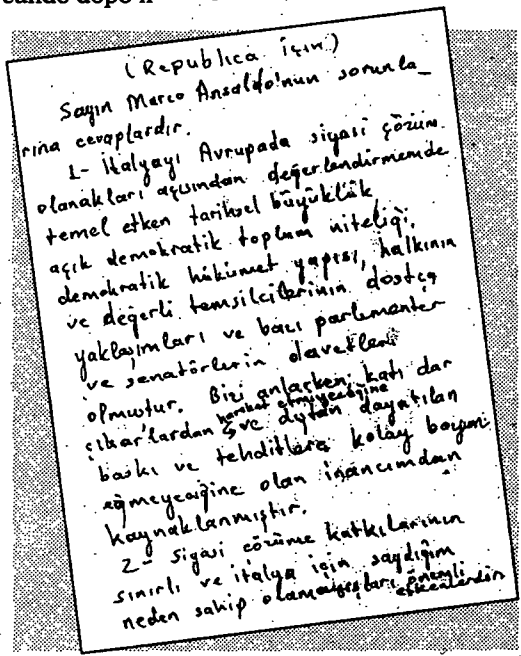 cando dopo il
(Republica için)
Sayın Marco Ansaldo'nun sorunla_
rına cevaplardır.
1- İtalyayı Avrupada siyasi çözüm
olanakları açısından değerlendirmemde
temel etken tarihsel büyüklük
açık demokratik toplum niteliği,
demokratik hükümet yapısı, halkının
ve değerli temsilcilerinin dostça
yaklaşımları ve bazı parlementer
ve senatörlerin davetleri
olmuştur. Bizi anlarken, katı dar
hareket etmiyeceğine
çıkarlardan ve dıştan dayatılan
baskı ve tehditlere kolay boyun
eğmeyeceğine olan inancımdan
kaynaklanmıştır.
2- Siyasi çözüme katkılarının
sınırlı ve italya için saydığım
neden sahip olamayışları önemli
etkenlerdir